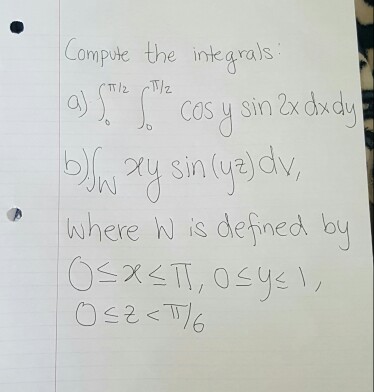 Compute the integrals:
a) ∫₀^π/2 ∫₀^π/2 cos y sin 2x dx dy
b) ∫_W xy sin(yz) dv,
where W is defined by
0≤x≤π, 0≤y≤1,
0≤z<π/6